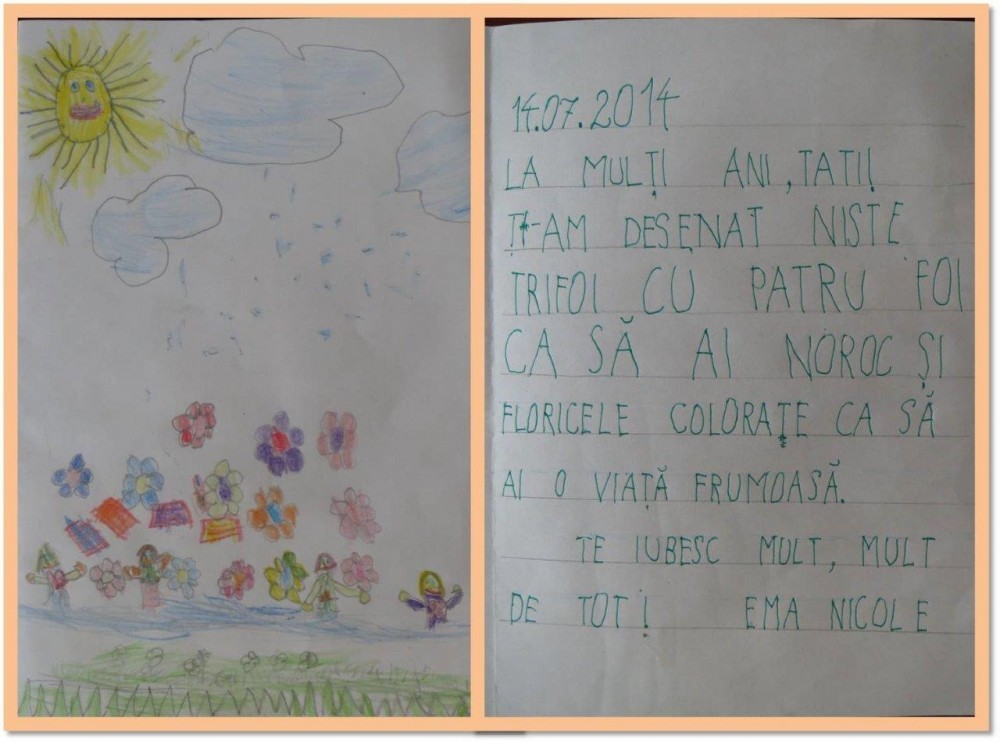 14.07.2014
LA MULȚI ANI, TATI!
ȚI-AM DESENAT NISTE
TRIFOI CU PATRU FOI
CA SĂ AI NOROC ȘI
FLORICELE COLORATE CA SĂ
AI O VIAȚĂ FRUMOASĂ.
TE IUBESC MULT, MULT
DE TOT! EMA NICOLE